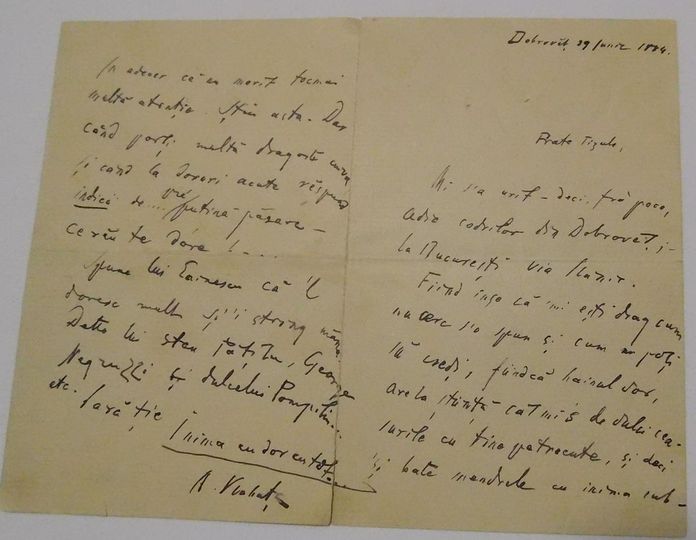 Dobrovăț, 29 Iunie 1884.
Frate Țigule,
Mi s'a urît – deci, fră poco,
adio codrilor din Dobrovăț și –
la București via
Fiind însă că mi ești drag cum
nu cerc s'o spun și cum nu poți
să crezi, fiindcă hainul dor,
are la știință cât mi-s de dulci cea-
surile cu tine petrecute, și deci
își bate mendrele cu inima sub-
În adever că nu merit tocmai
multă atenție. Știu asta. Dar
când porți multă dragoste cuiva
și când la doruri acute răspund
indică de ... vre puțină păsare –
ce rău te dore ! ....
Spune lui Eminescu că 'l
doresc mult și 'i strîng mâna.
Ditto lui George
Negruzzi și dulcelui Pompiliu...
etc. Iară ție
Inima cu dor cu tot.
A. Vlahuță